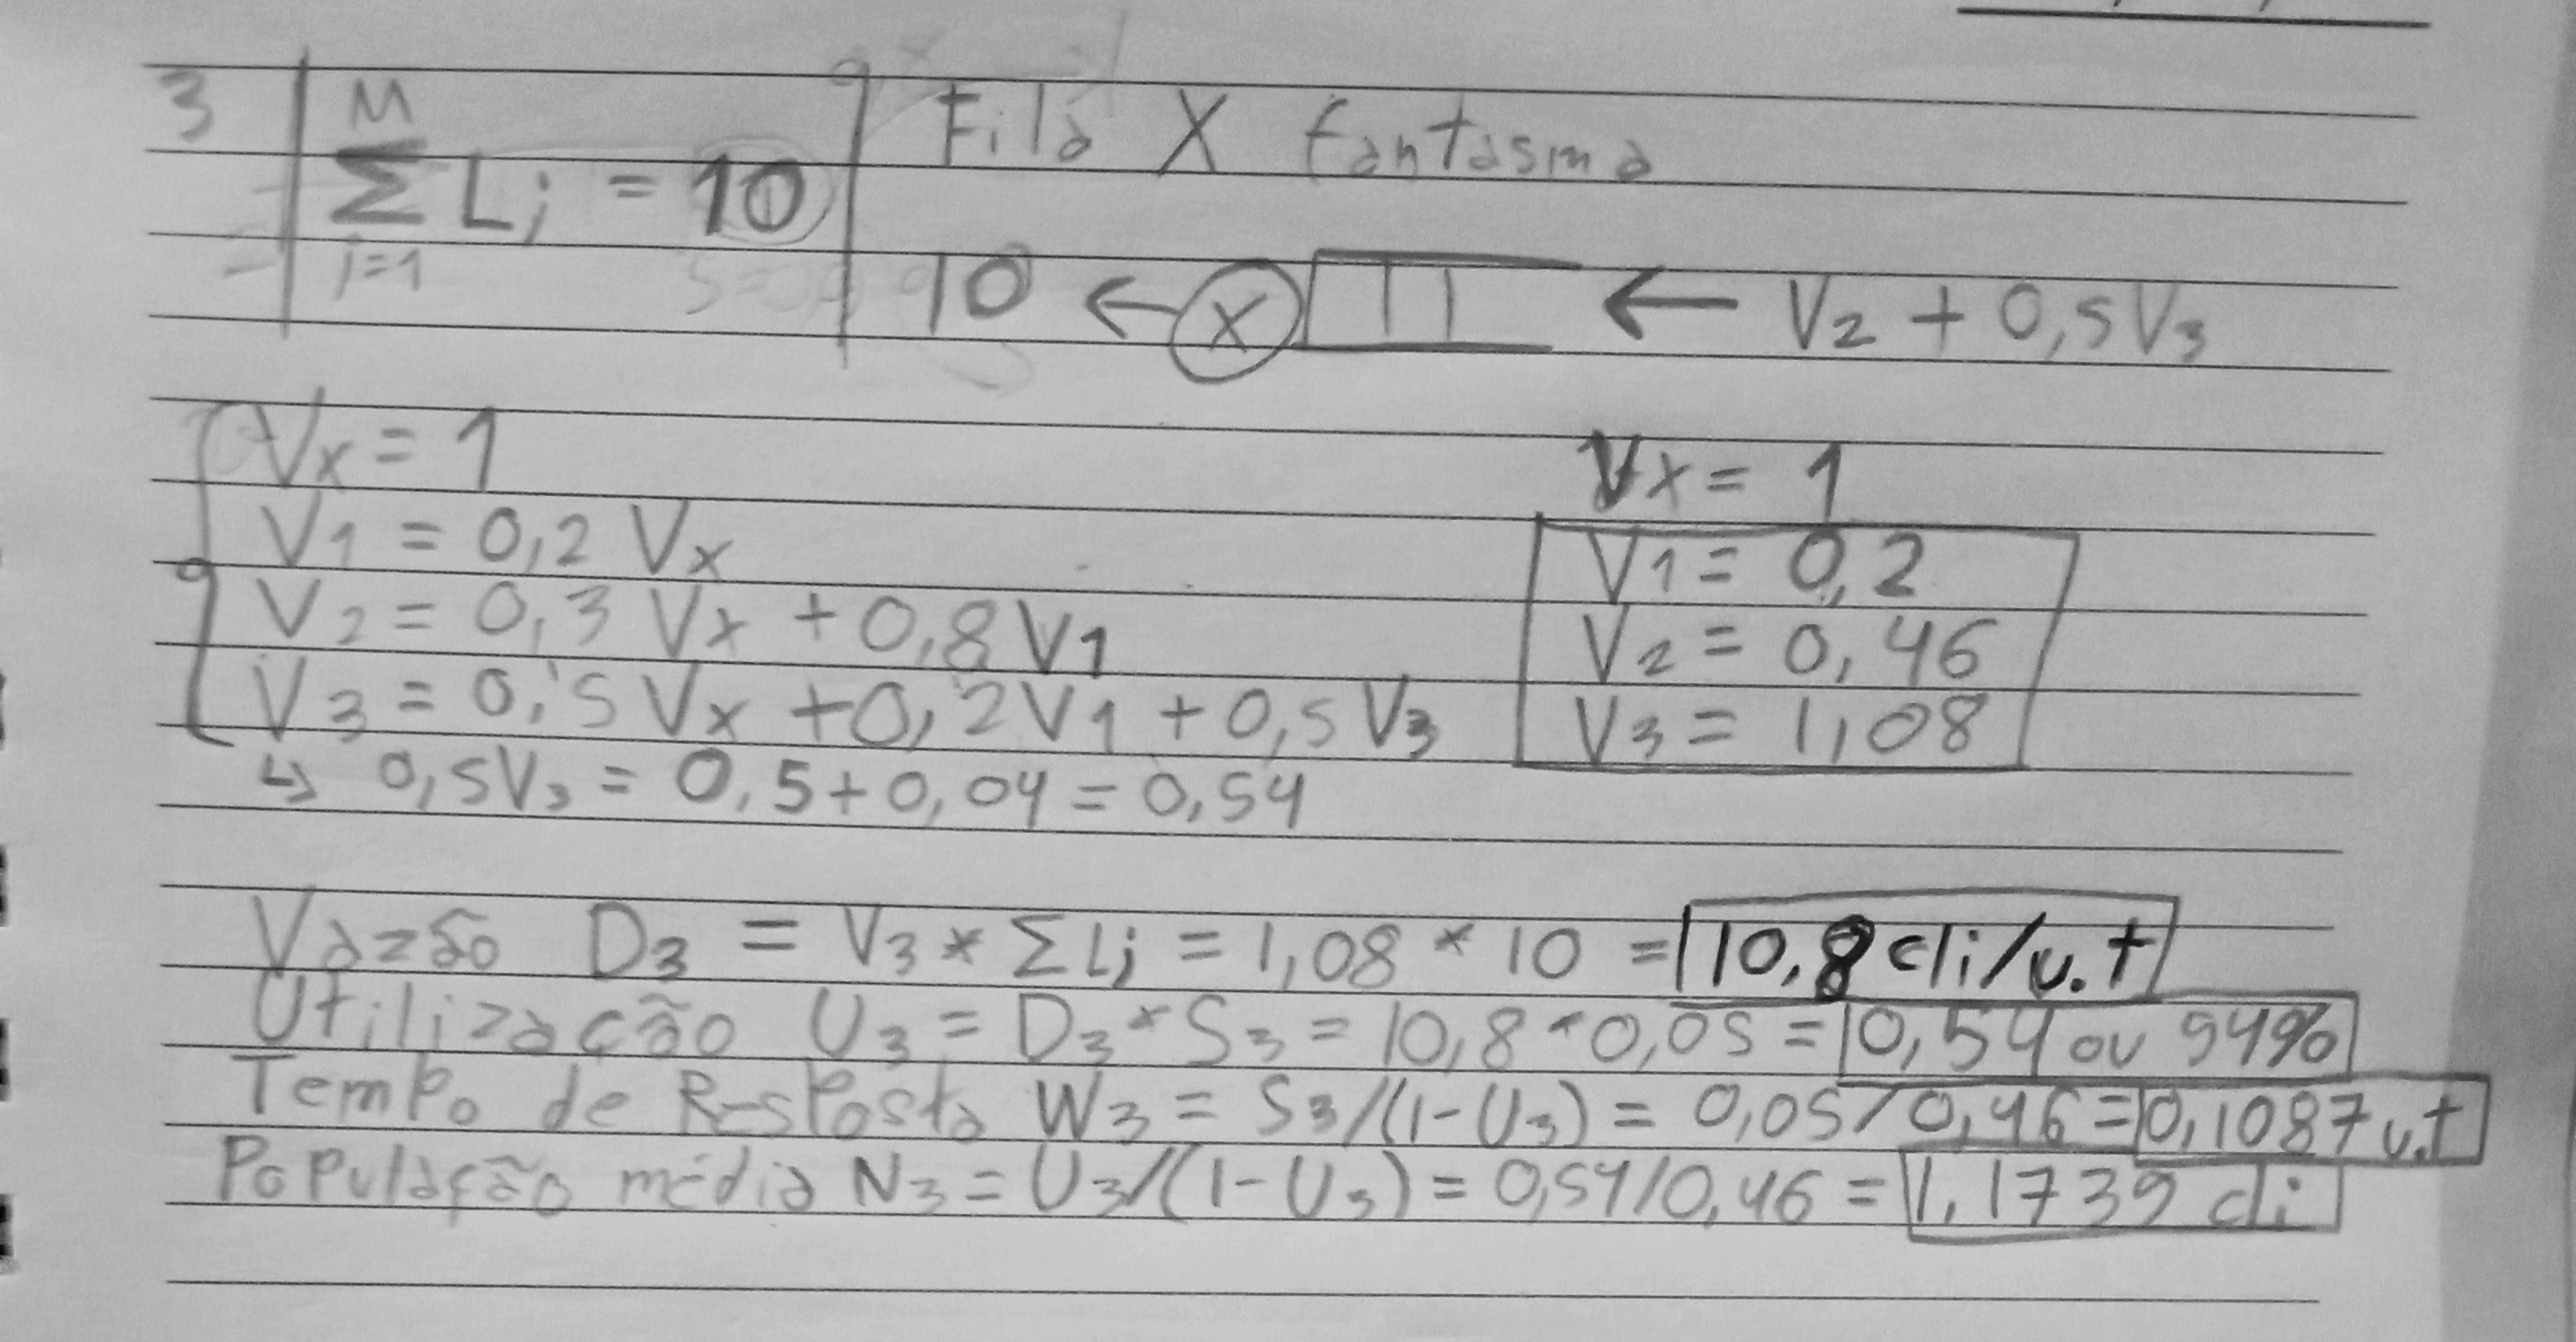 3 | M ∑ j=1 Lj = 10 | Fila X fantasma
10 ← X ← V2 + 0,5V3
Vx = 1
V1 = 0,2 Vx
V2 = 0,3 Vx + 0,8 V1
V3 = 0,5 Vx + 0,2 V1 + 0,5 V3
↳ 0,5V3 = 0,5 + 0,04 = 0,54
Vx = 1
V1 = 0,2
V2 = 0,46
V3 = 1,08
Vazão D3 = V3 * ∑ Lj = 1,08 * 10 = 10,8 cli/u.t
Utilização U3 = D3 * S3 = 10,8 * 0,05 = 0,54 ou 54%
Tempo de Resposta W3 = S3/(1-U3) = 0,05/0,46 = 0,1087 u.t
População média N3 = U3/(1-U3) = 0,54/0,46 = 1,1739 cli